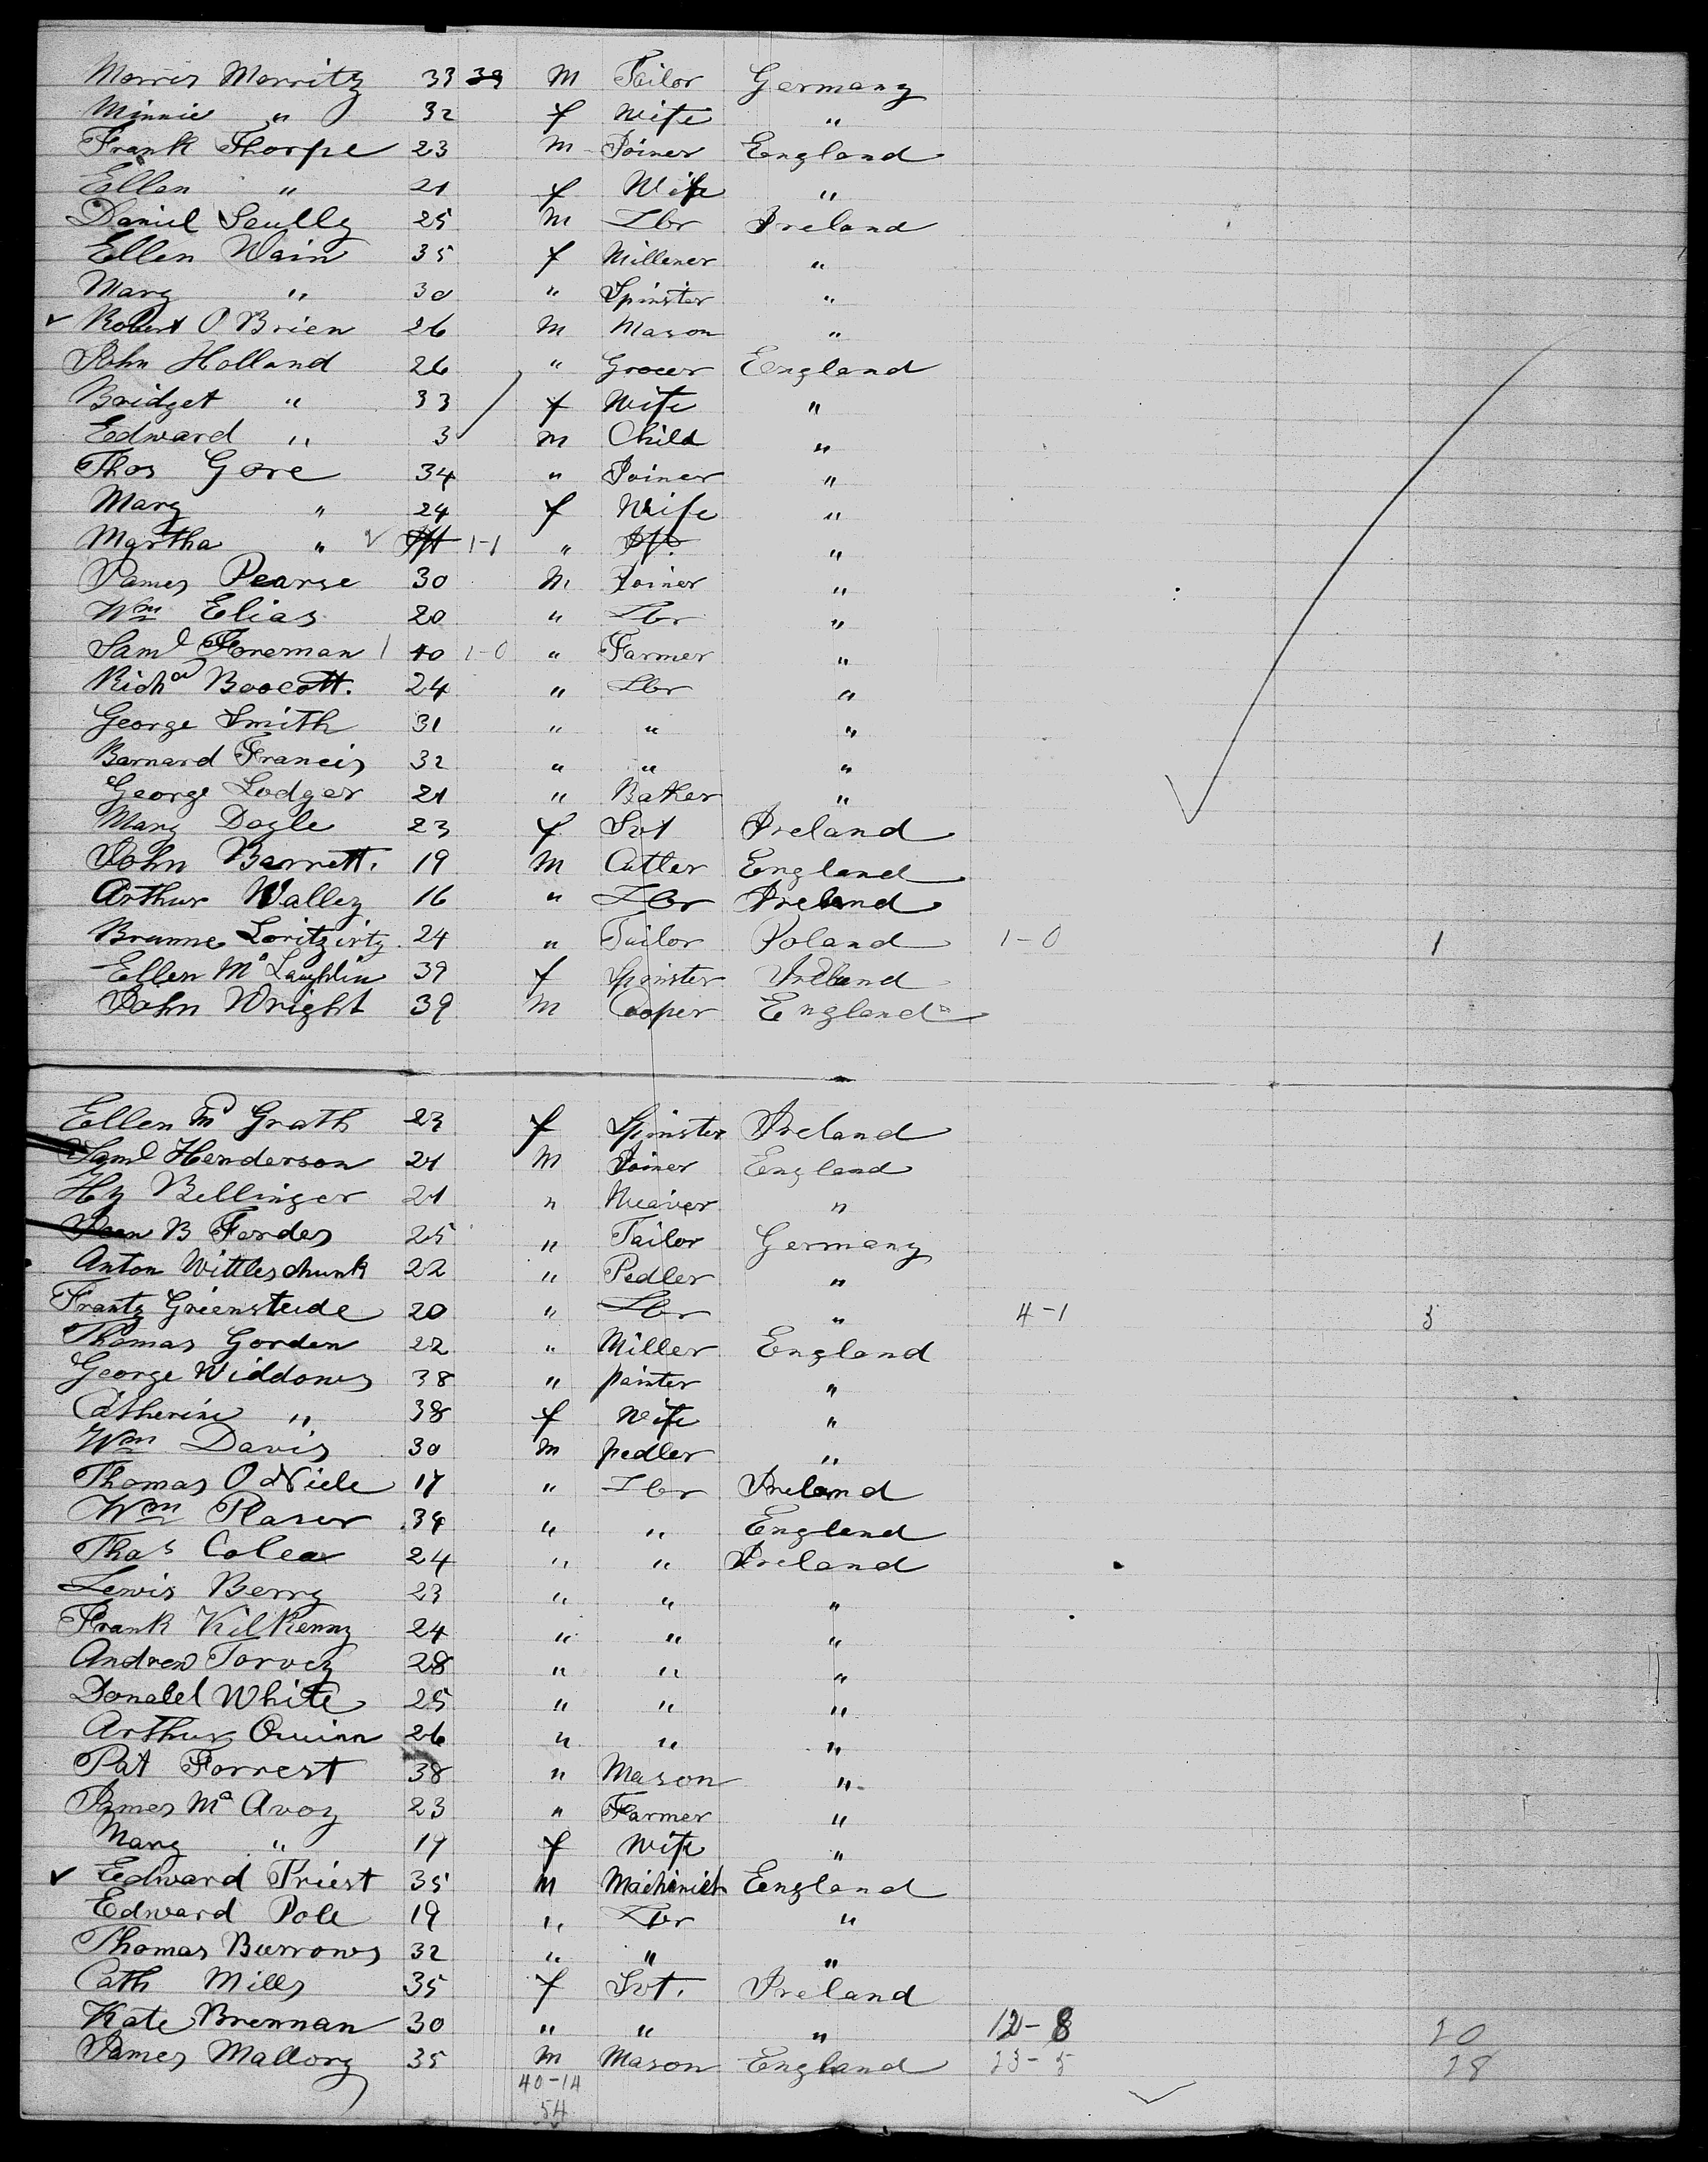 Morris Morritz 33 39 M Tailor Germany
Minnie " 32 f Wife "
Frank Thorpe 23 M Joiner England
Ellen " 21 f Wife "
Daniel Scully 25 M Lbr Ireland
Ellen Wain 35 f Millener "
Mary " 30 " Spinster "
✓ Robert O Brien 26 M Mason "
John Holland 26 " Grocer England
Bridget " 33 f Wife "
Edward " 3 M Child "
Thos Gore 34 " Joiner "
Mary " 24 f Wife "
Martha " ✓ Inft 1-1 " Inf. "
James Pearse 30 M Joiner "
Wm Elias 20 " Lbr "
Saml Foreman 1 40 1-0 " Farmer "
Richd Boocott. 24 " Lbr "
George Smith 31 " " "
Barnard Francis 32 " " "
George Lodger 21 " Baker "
Mary Dogle 23 f Svt Ireland
John Barrett. 19 M Cutler England
Arthur Walley 16 " Lbr Ireland
Brunne Loritzirtz 24 " Tailor Poland 1-0 1
Ellen Mc Laughlin 39 f Spinster Ireland
John Wright 39 M Cooper England
Ellen Mc Grath 23 f Spinster Ireland
Saml Henderson 21 M Joiner England
Hy Bellinger 21 " Weaver "
B Fordes 25 " Tailor Germany
Anton Wittleschunk 22 " Pedler "
Frantz Greensteide 20 " Lbr " 4-1 3
Thomas Gorden 22 " Miller England
George Widdows 38 " painter "
Catherine " 38 f Wife "
Wm Davis 30 M pedler "
Thomas O Niele 17 " Lbr Ireland
Wm Plaser 34 " " England
Thos Colea 24 " " Ireland
Lewis Berry 23 " " "
Frank Kilkenny 24 " " "
Andrew Torvey 28 " " "
Donalel White 25 " " "
Arthur Quinn 26 " " "
Pat Forrest 38 " Mason "
James Mc Avoy 23 " Farmer "
Mary " 19 f Wife "
✓ Edward Priest 35 M Machinist England
Edward Pole 19 " Lbr "
Thomas Burrows 32 " " "
Cath Mills 35 f Svt. Ireland
Kate Brennan 30 " " " 12-8 20
James Mallory 35 M Mason England 23-5 28
40-14
54